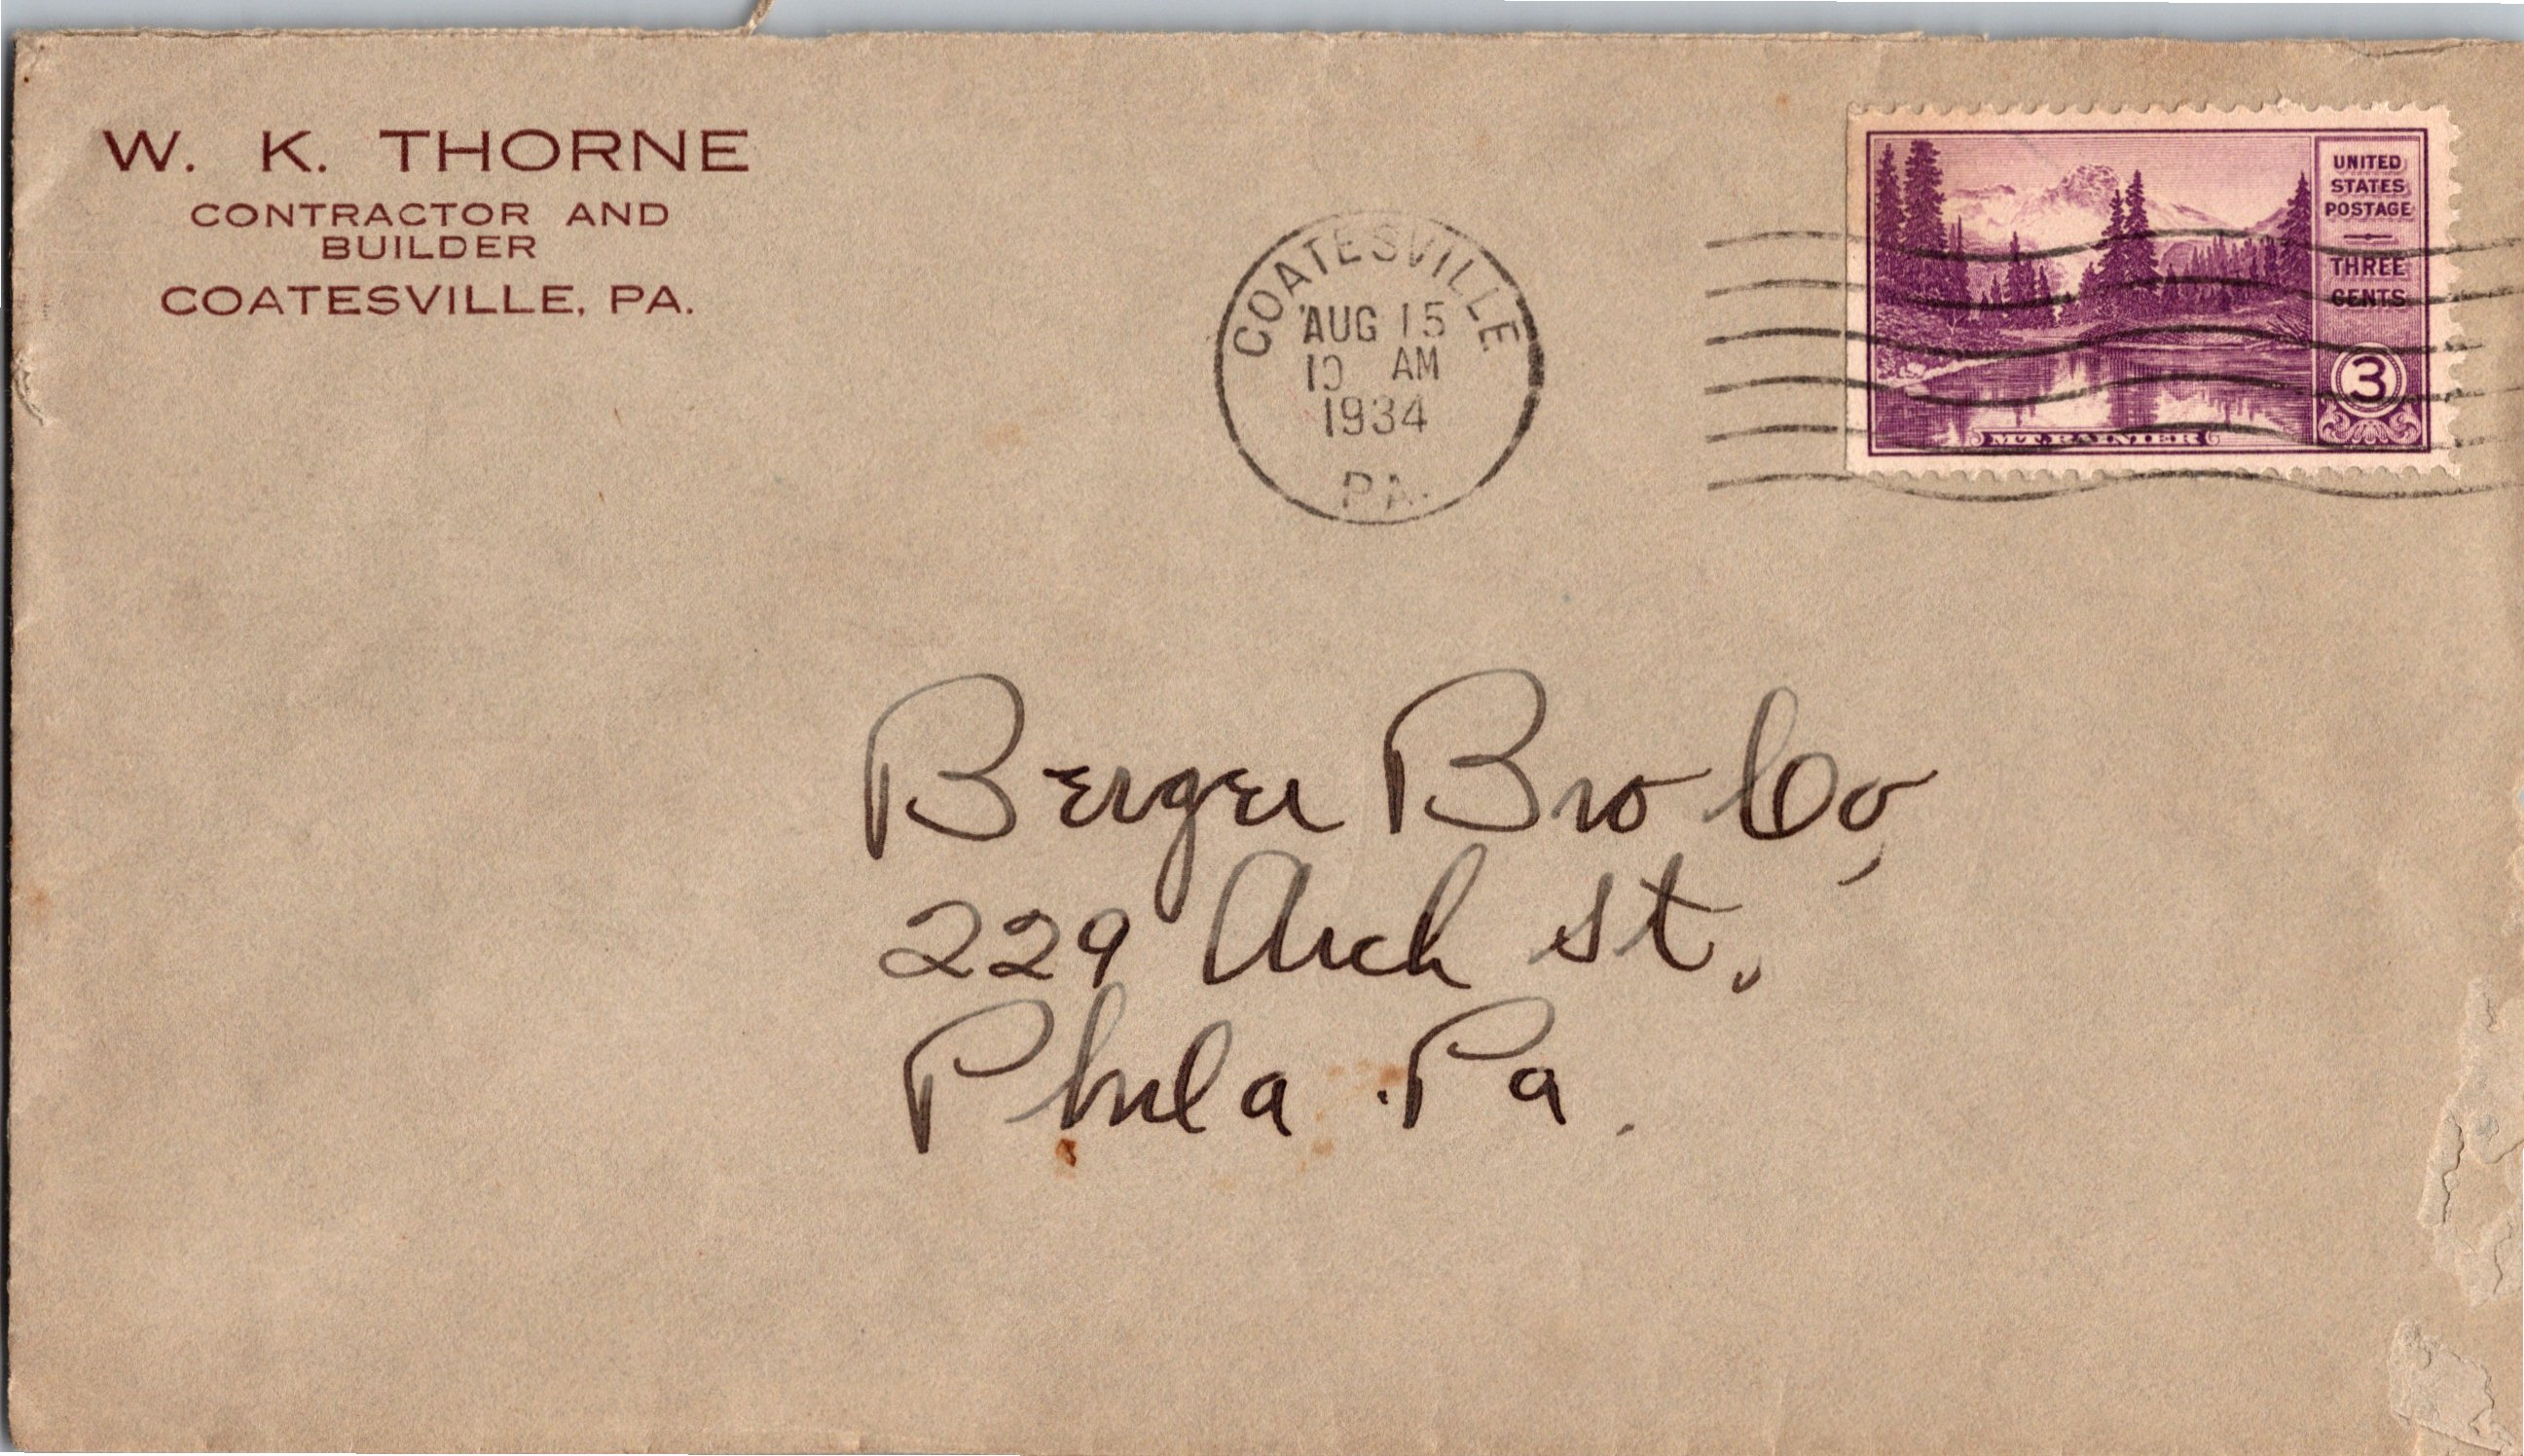 W. K. THORNE
CONTRACTOR AND
BUILDER
COATESVILLE, PA.
COATESVILLE
AUG 15
10 AM
1934
PA.
UNITED
STATES
POSTAGE
THREE
CENTS
3
MT. RAINIER
Berger Bro Co,
229 Arch St.
Phila. Pa.